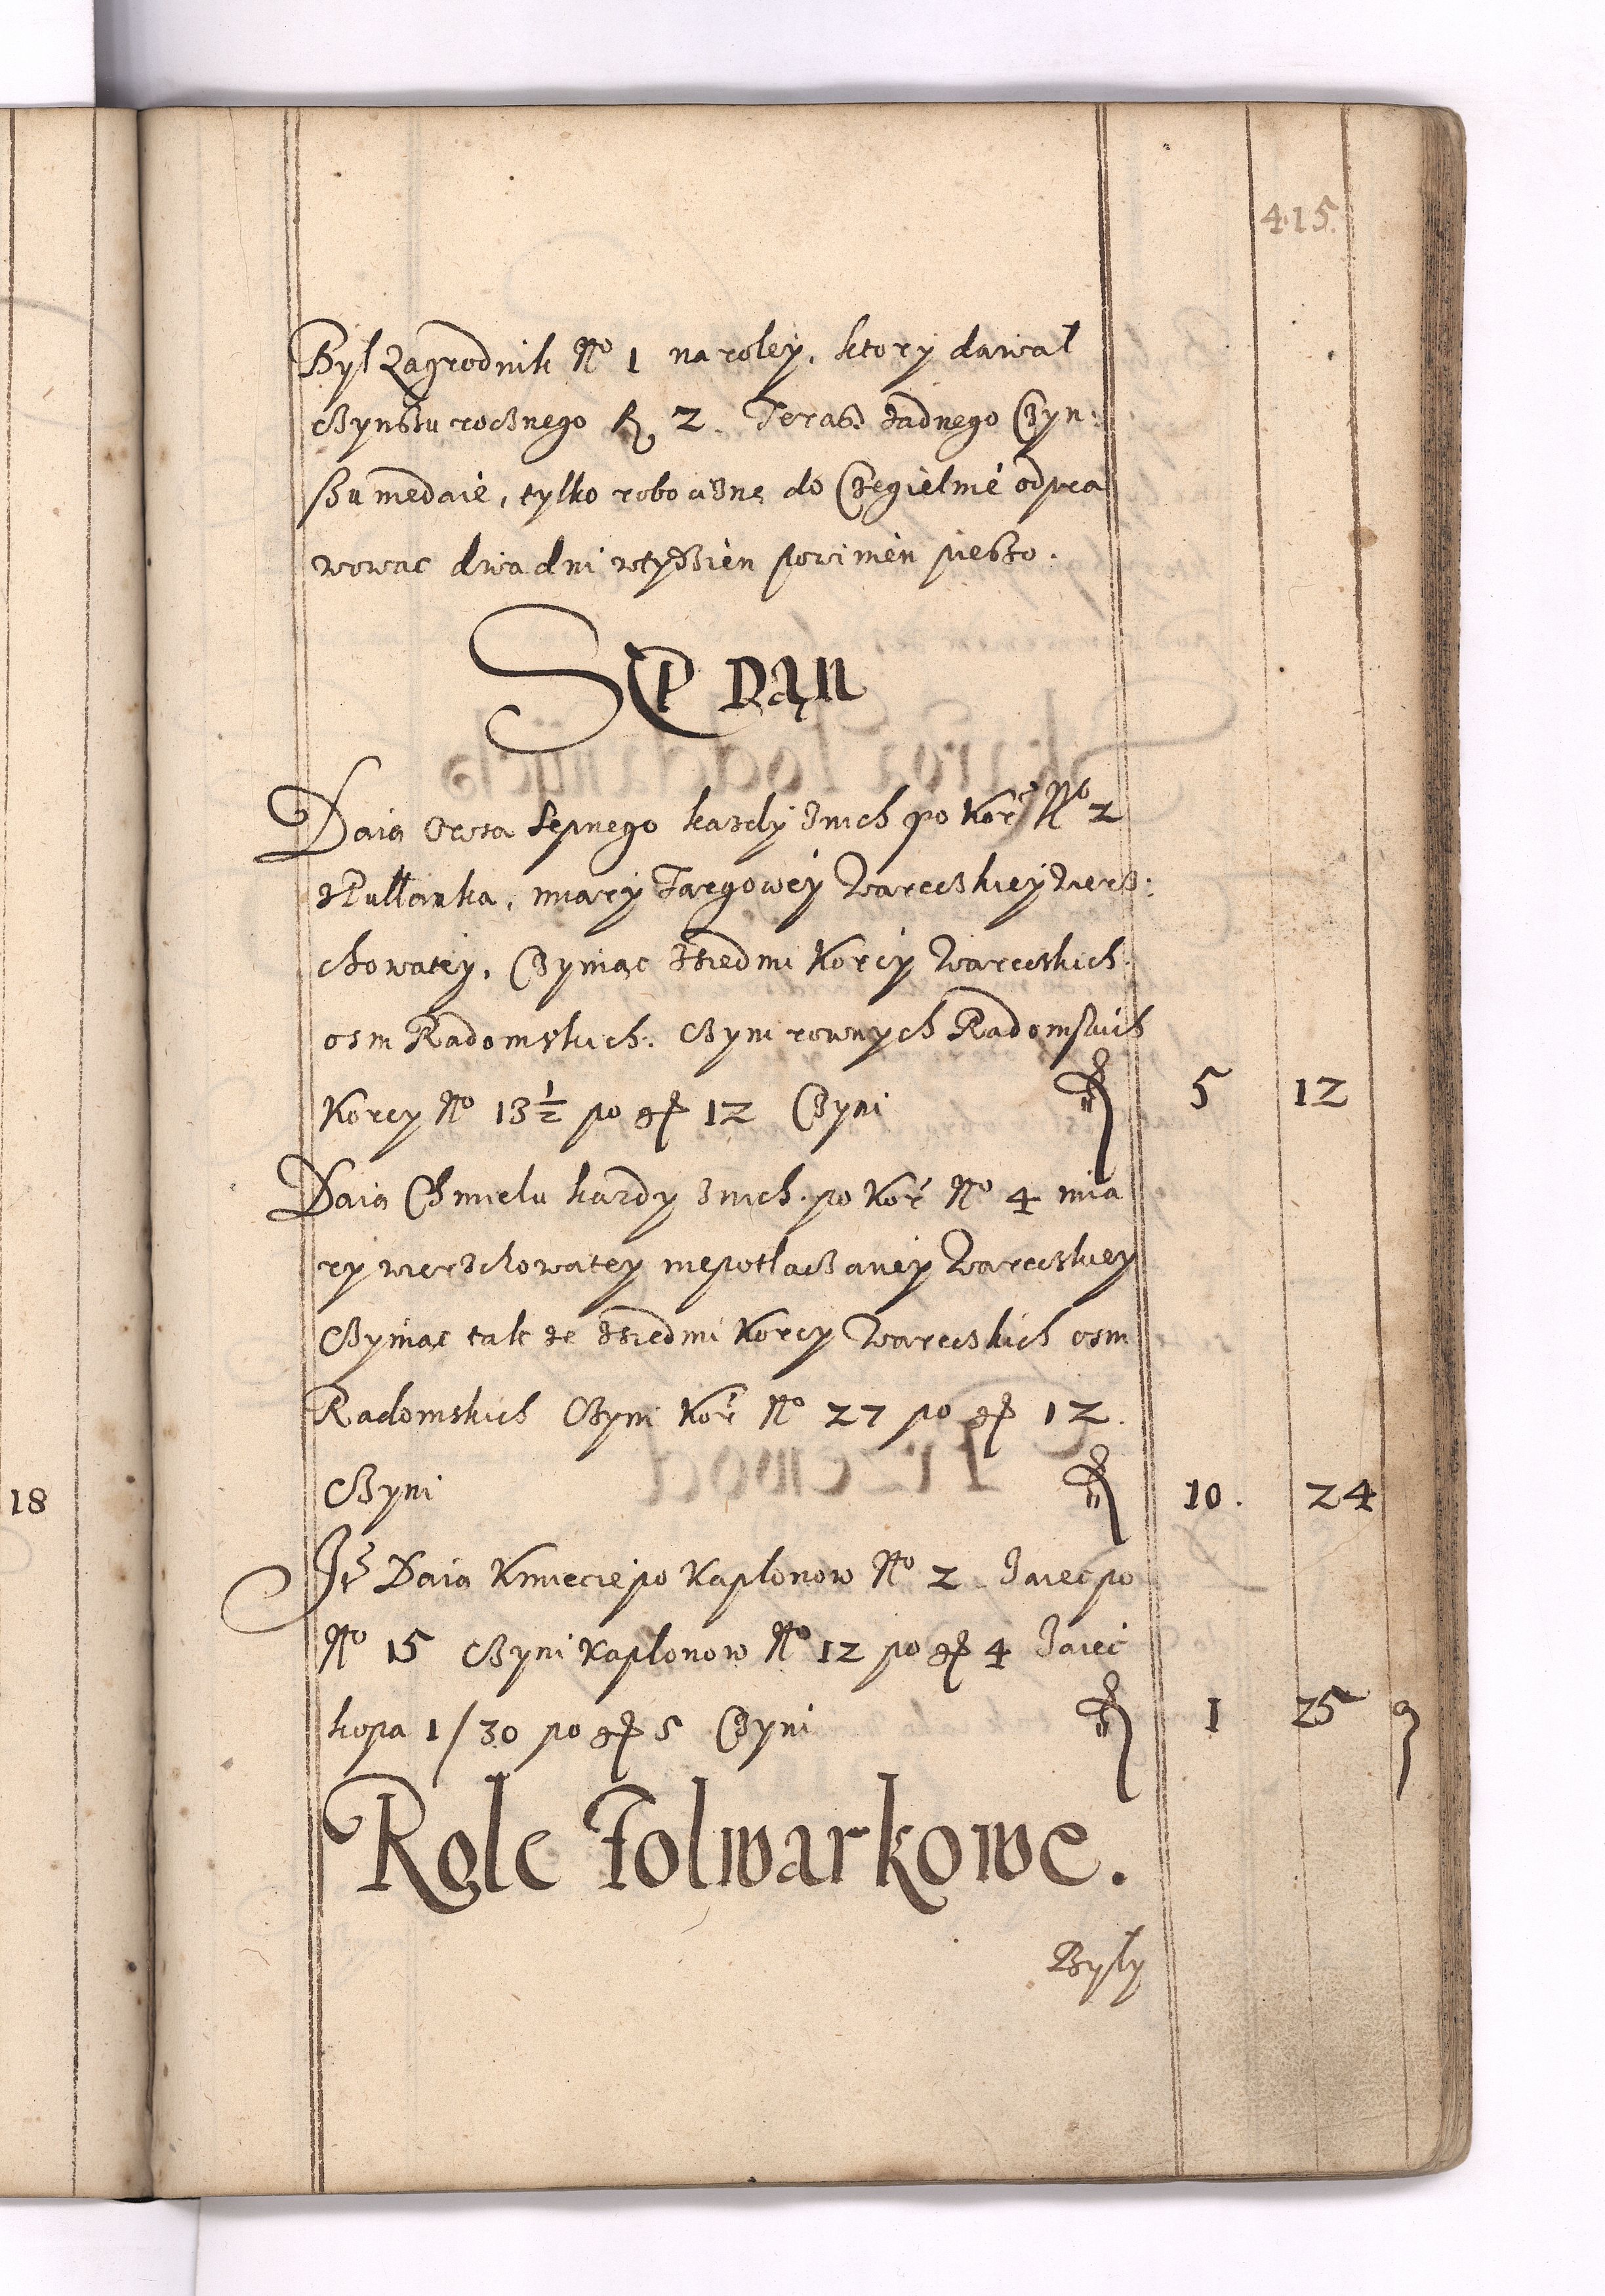 415.
Był Zagrodnik No 1 na roley, ktory dawał
czynszu rocznego fl 2. Teraz żadnego Czyn:
szu niedaie, tylko robociznę do Czegielnie odpra
wowac dwa dni wtydzien powinien pieszo.
SEP DAN
Daią Owsa Sepnego każdy znich po Kor No 2
zPułłanka, miary Targowey Wareckiey wierz:
chowatey, Czyniąc zsiedmi Korcy Wareckich
osm Radomskich. Czyni rownych Radomskich
Korcy No 13½ po gr 12 Czyni fl 5 12
Daią Chmielu każdy znich po Kor No 4 mia
ry wierzchowatey niepotłaczaney Wareckiey
Czyniąc także zsiedmi Korcy Wareckich osm
Radomskich Czyni Kor No 27 po gr 12.
Czyni fl 10. 24
18
It Daią Kmiecie po Kapłonow No 2 Jaiec po
No 15 Czyni Kapłonow No 12 po gr 4 Jaiec
kopa 1/30 po gr 5 Czyni fl 1 25 9
Role Folwarkowe.
Były